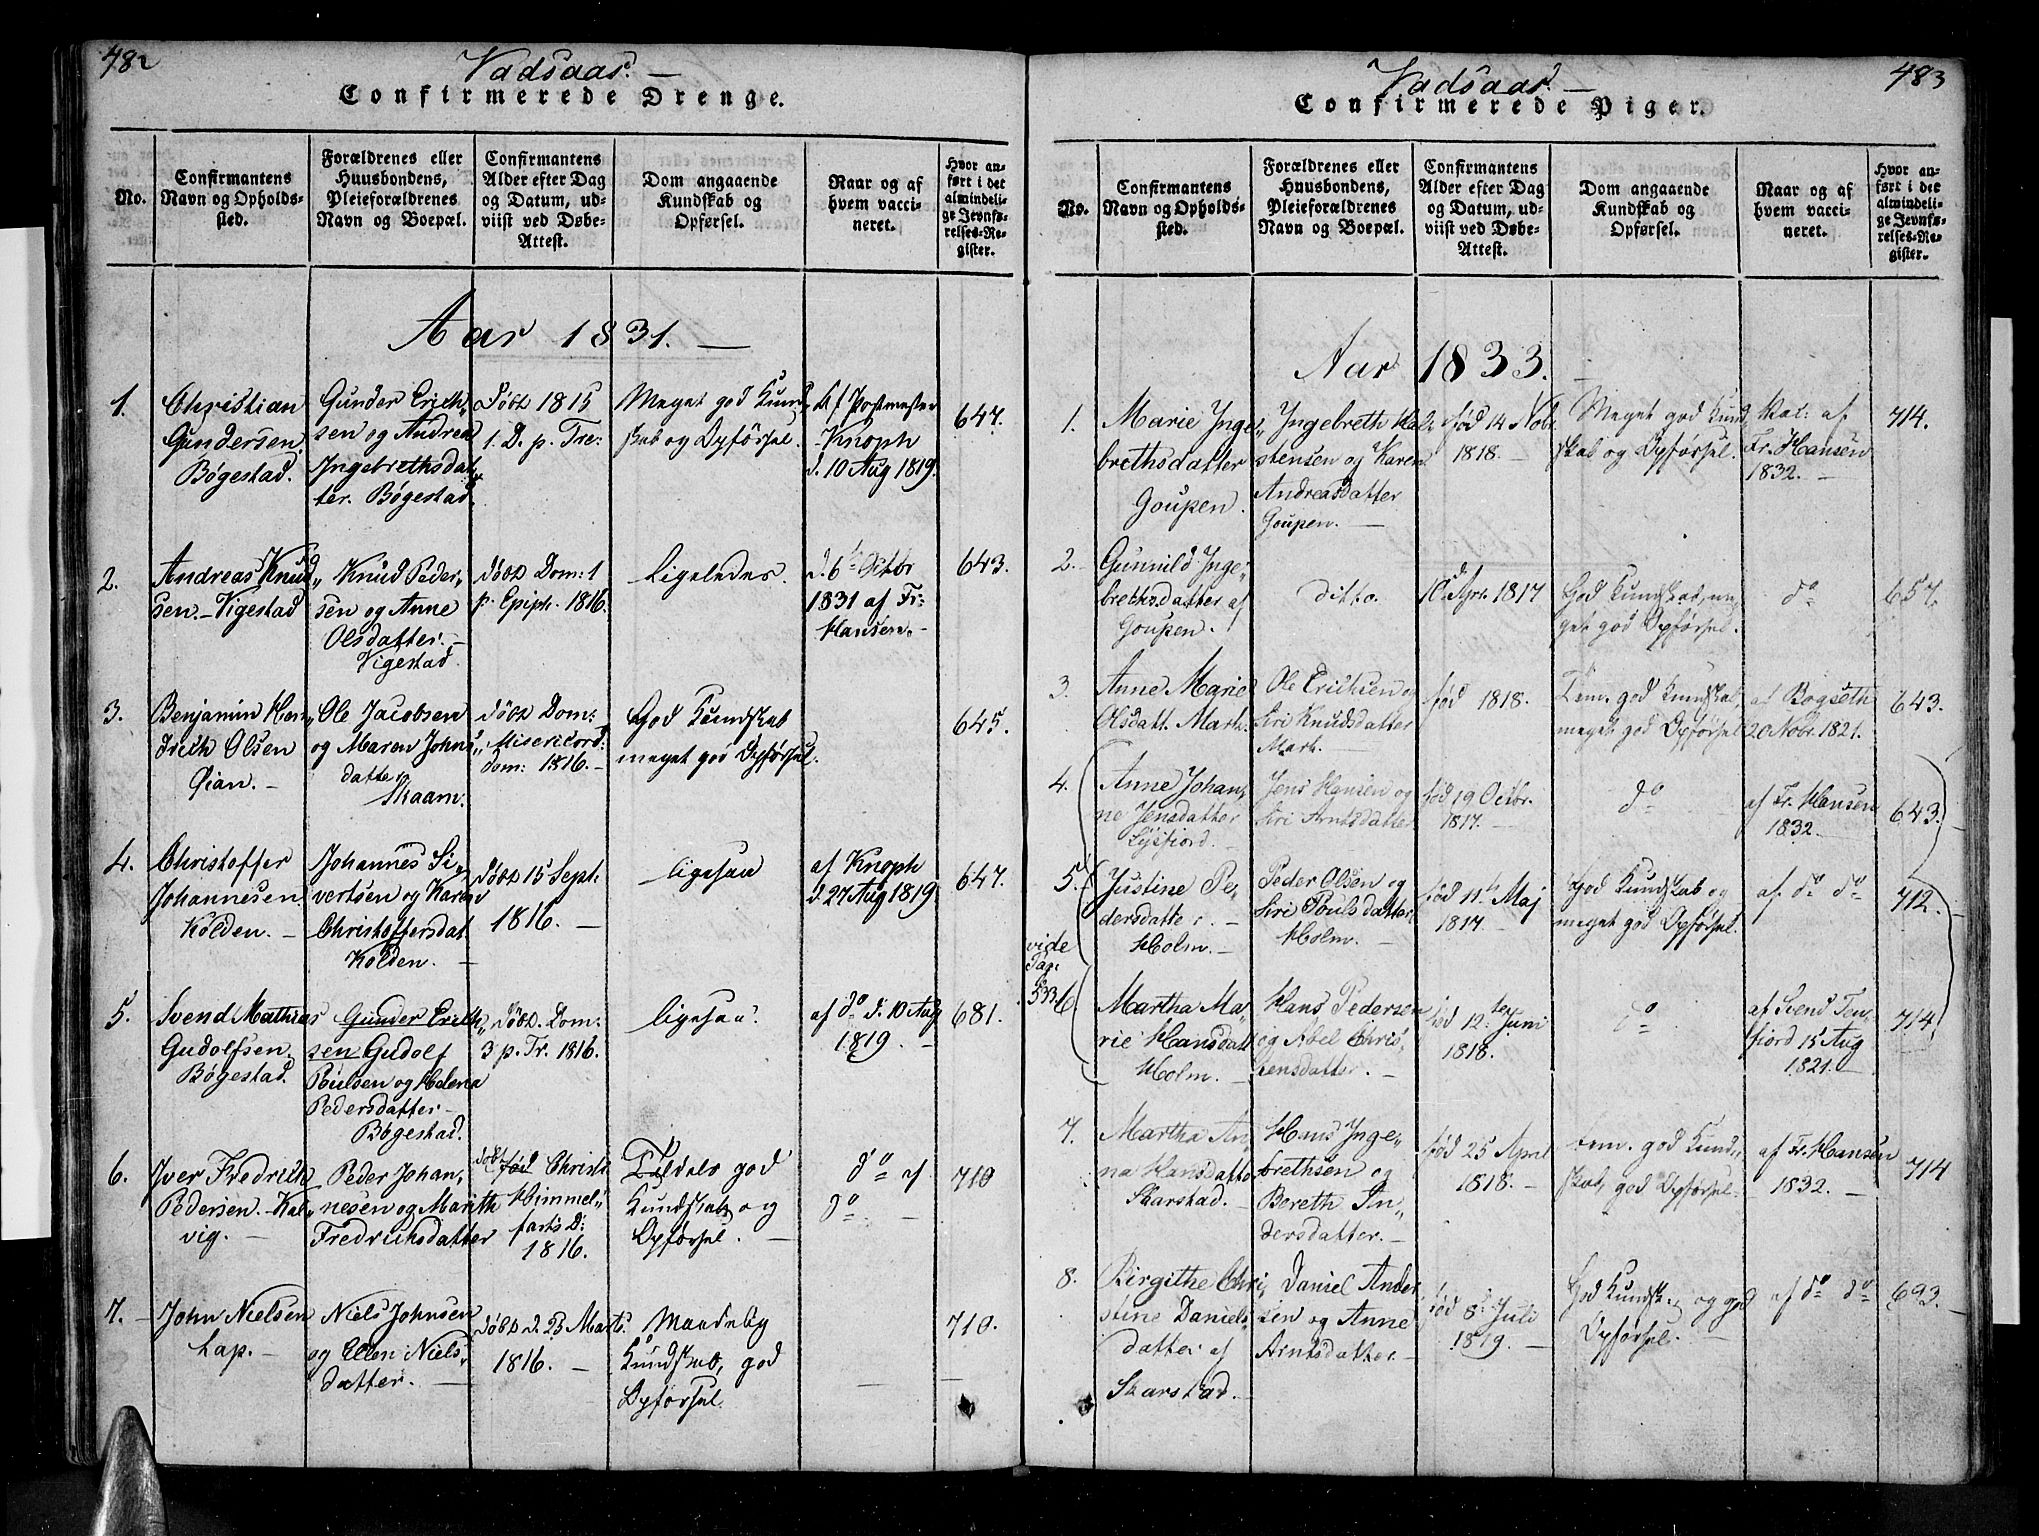 482
Vadsaas. —
Confirmerede Drenge.
No.
Confirmantens
Navn og Opholds-
sted.
Forældrenes eller
Huusbondens,
Pleieforældrenes
Navn og Boepæl.
Confirmantens
Alder efter Dag
og Datum, ud-
viist ved Døbe-
Attest.
Dom angaaende
Kundskab og
Opførsel.
Naar og af
hvem vacci-
neret.
Hvor an-
ført i det
almindeli-
ge Jevnfø-
relses-Re-
gister.
Aar 1831. —
1.
Christian
Gundersen
Bøgestad.
Gunder Erich„
sen og Andrea
Ingebrethsdat„
ter. Bøgestad.
Døbt 1815
1. D. p. Tre:
Meget god Kund„
skab og Opførsel.
Af Postmester
Knoph
d. 10 Aug 1819.
647.
2.
Andreas Knud„
sen. – Vigestad
Knud Peder„
sen og Anne
Olsdatter. –
Vigestad.
døbt Dom: 1
p. Epiph. 1816.
Ligeledes.
d. 6te Octbr
1831 af Fr:
Hansen. –
643.
3.
Benjamin Hen„
drich Olsen
Øian. –
Ole Jacobsen
og Maren Johns„
datter
Skaam.
døbt Dom:
Misericord:
dom: 1816. –
God Kundskab
meget god Opførsel.
645.
4.
Christoffer
Johannesen
Kolden. –
Johannes Si„
vertsen og Karen
Christoffersdat.
Kolden. –
Døbt 15 Sept:
1816. –
ligesaa
af Knoph
d. 27 Aug 1819
647.
5.
Svend Mathias
Gudolfsen.
Bøgestad.
Gunder Erich„
sen Gudolf
Poulsen og Helena
Pedersdatter –
Bøgestad.
Døbt. Dom:
3 p. Tr. 1816.
ligesaa.
af do d. 10 Aug
1819. –
681.
6.
Iver Fredrich
Pedersen. – Kal„
vig. –
Peder Johan„
nesen og Marith
Fredrichsdatter
døbt født Christi
Himmel„
farts D:
1816.
Tildels god
Kundskab og
Opførsel. –
do af
do –
710
7. –
John Nielsen
Lap. –
Niels Johnsen
og Ellen Niels„
datter. –
Døbt d. 23 Marts.
1816. –
Maadelig
Kundskab, god
Opførsel.
—
710.
483
Vadsaas. –
Confirmerede Piger.
No.
Confirmantens
Navn og Opholds-
sted.
Forældrenes eller
Huusbondens,
Pleieforældrenes
Navn og Boepæl.
Confirmantens
Alder efter Dag
og Datum, ud-
viist ved Døbe-
Attest.
Dom angaaende
Kundskab og
Opførsel.
Naar og af
hvem vacci-
neret.
Hvor an-
ført i det
almindeli-
ge Jevnfø-
relses-Re-
gister.
Aar 1833. –
1.
Marie Inge„
brethsdatter
Goupen.
Ingebreth
stensen og Karen
Andreasdatter
Goupen. –
fød 14 Nobr.
1818. –
Meget god Kund„
skab og Opførsel.
Vac: af
Fr. Hansen
1832. –
714.
2.
Gunnild Inge„
brethsdatter af
Goupen.
ditto.
10 Apr. 1817
God Kundskab, me„
get god Opførsel.
do
657.
3.
Anne Marie
Olsdatt. Mark.
Ole Erichsen og
Siri Knudsdatter
Mark. –
fød 1818.
Tem. god Kundskab,
meget god Opførsel
af Bogseth
20 Nobr. 1821.
643.
4.
Anne Johan„
ne Jensdatter
Lysfjord. –
Jens Hansen og
Siri Arntsdatter
fød 19 Octbr.
1817. –
do
af Fr. Hansen
1832. –
643.
5.
Justine Pe„
dersdatter. –
Holm. –
Peder Olsen og
Siri Poulsdatter.
Holm. –
fød 11te Maj
1817. –
God Kundskab og
meget god Opførsel.
af do do
712. –
vide
Pag:
533.
6.
Martha Ma„
rie Hansdatt.
Holm. –
Hans Pedersen
og Abel Chris„
tensdatter. –
fød 12te Juni
1818.
do
af Svend
fiord 15 Aug
1821. –
714.
7.
Martha An„
na Hansdatter
Skarstad. –
Hans Inge„
brethsen og
Bereth An„
dersdatter. –
fød 25 April
1818. –
tem. god Kund„
skab, god Opførsel.
af Fr. Hansen
1832. –
714
8.
Birgithe Chri„
stine Daniels„
datter af
Skarstad. –
Daniel Ander„
sen og Anne
Arntsdatter. –
fød 8de Juli
1819. –
God Kundsk. og god
Opførsel. –
af do do
693. –